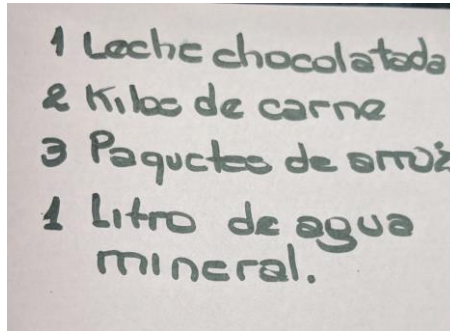 1 Leche chocolatada
2 Kilos de carne
3 Paquetes de arroz
1 Litro de agua
mineral.